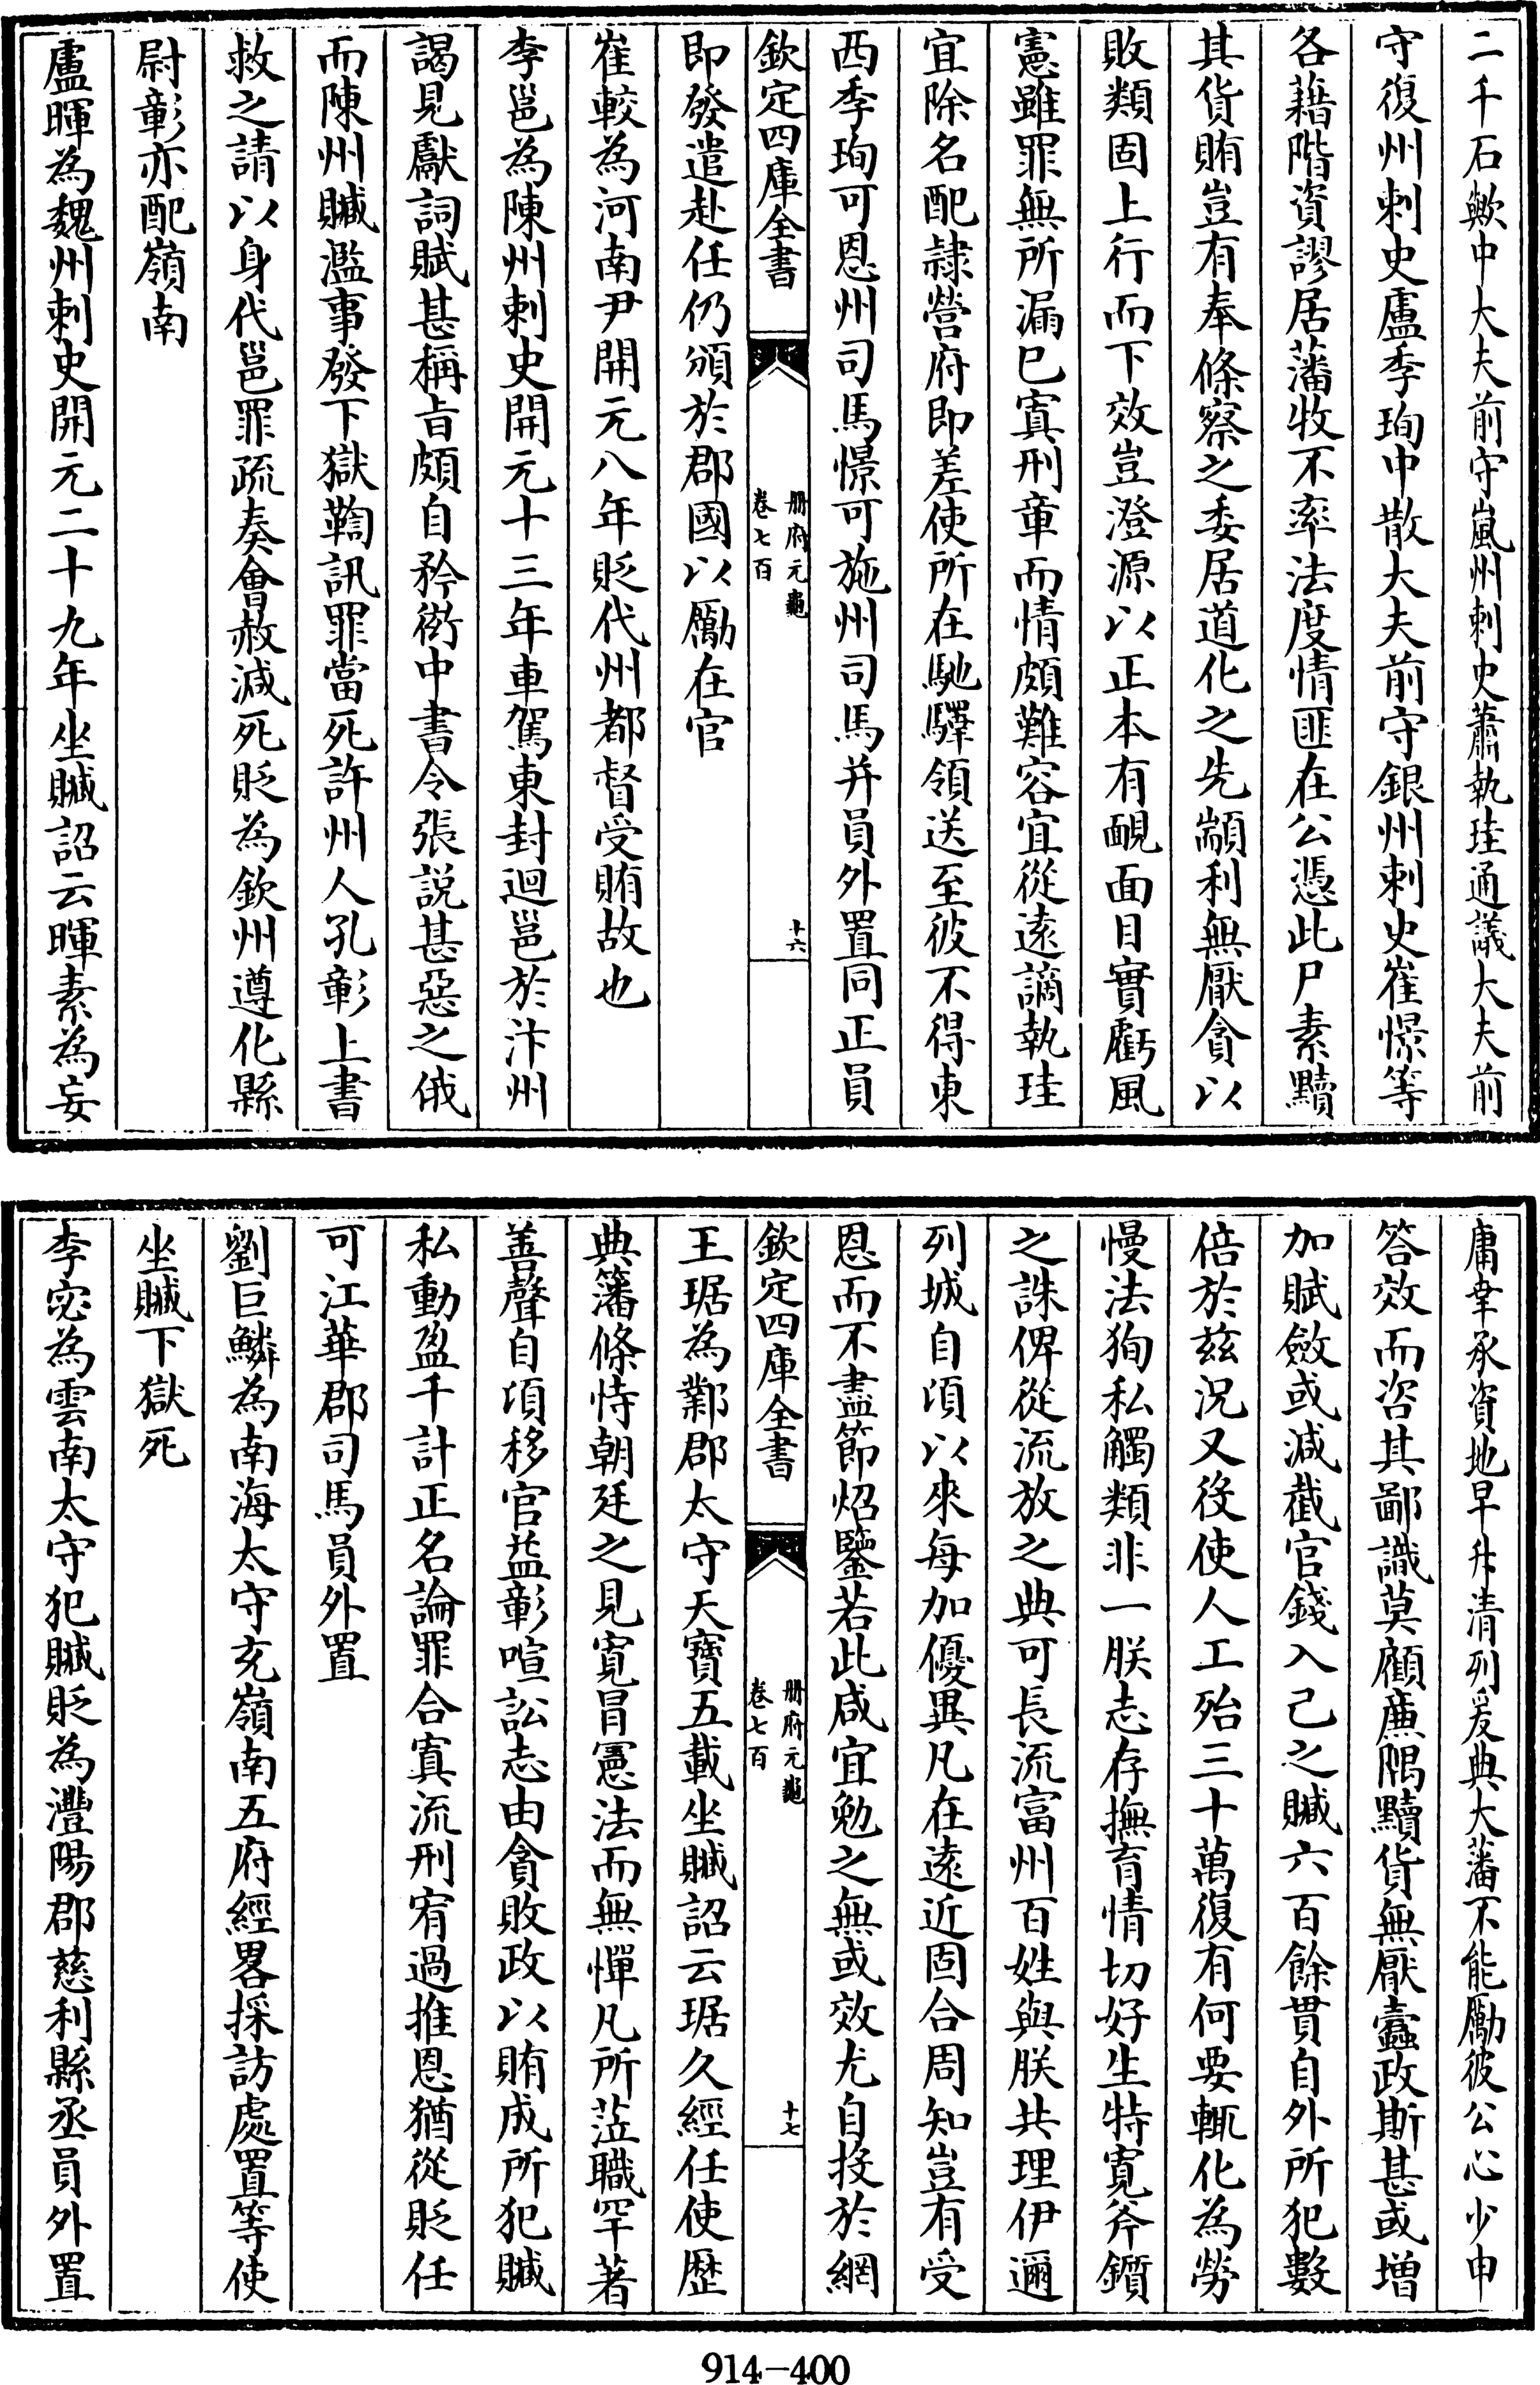 二千石歟中大夫前守嵐州刺史蕭執珪通議大夫前
守復州刺史盧季珣中散大夫前守銀州刺史崔憬等
各藉階資謬居藩牧不率法度情匪在公憑此尸素黷
其貨賄豈有奉條察之委居道化之先顓利無厭貪以
敗類固上行而下效豈澄源以正本有靦面目實虧風
憲雖罪無所漏已寘刑章而情頗難容宜從遠謫執珪
宜除名配隷營府即差使所在馳驛領送至彼不得東
西季珣可恩州司馬憬可施州司馬并員外置同正員
欽定四庫全書
册府元龜
卷七百
十六
即發遣赴任仍頒於郡國以勵在官
崔較為河南尹開元八年貶代州都督受賄故也
李邕為陳州刺史開元十三年車駕東封迴邕於汴州
謁見獻詞賦甚稱旨頗自矜衒中書令張説甚惡之俄
而陳州贓濫事發下獄鞫訊罪當死許州人孔彰上書
救之請以身代邕罪疏奏會赦減死貶為欽州遵化縣
尉彰亦配嶺南
盧暉為魏州刺史開元二十九年坐贓詔云暉素為妄
庸幸承資地早升清列爰典大藩不能勵彼公心少申
答效而恣其鄙識莫顧廉隅黷貨無厭蠹政斯甚或增
加賦斂或減截官錢入己之贓六百餘貫自外所犯數
倍於兹況又役使人工殆三十萬復有何要輒化為勞
慢法狥私觸類非一朕志存撫育情切好生特寛斧鑕
之誅俾從流放之典可長流富州百姓與朕共理伊邇
列城自頃以來每加優異凡在遠近固合周知豈有受
恩而不盡節炤鑒若此咸宜勉之無或效尤自投於網
欽定四庫全書
册府元龜
卷七百
十七
王琚為鄴郡太守天寶五載坐贓詔云琚久經任使歴
典藩條恃朝廷之見寛冒憲法而無憚凡所蒞職罕著
善聲自項移官益彰喧訟志由貪敗政以賄成所犯贓
私動盈千計正名論罪合寘流刑宥過推恩猶從貶任
可江華郡司馬員外置
劉巨鱗為南海太守充嶺南五府經畧採訪處置等使
坐贓下獄死
李宓為雲南太守犯贓貶為灃陽郡慈利縣丞員外置
914-400